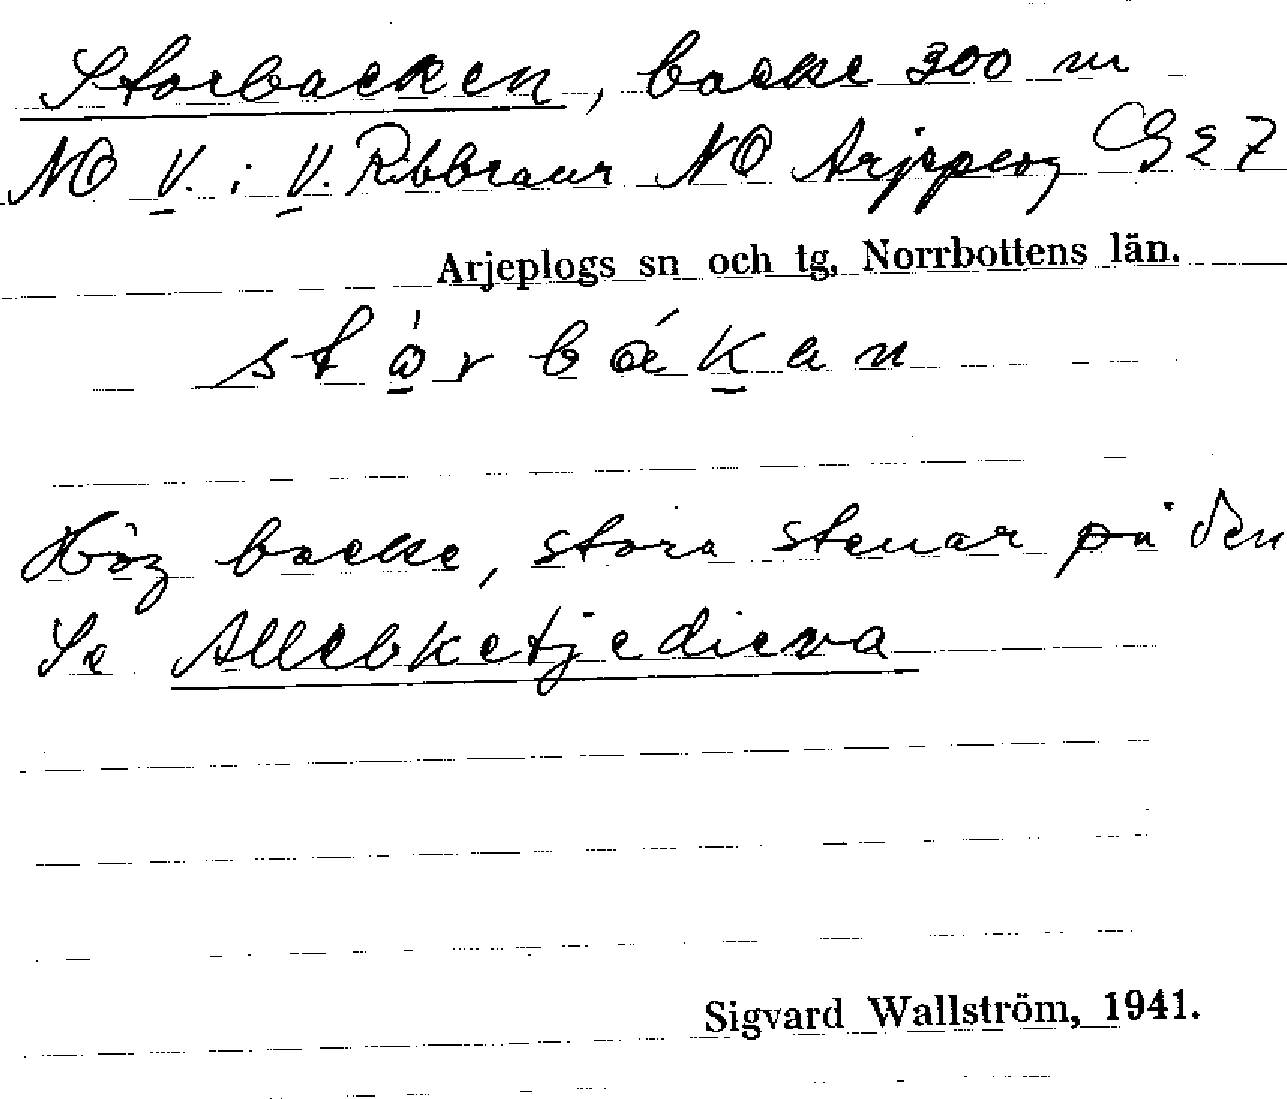 Storbacken, backe 300 m
NO V. i V. Rebraur NO Arjeplog G27
Arjeplogs sn och tg, Norrbottens län.
stå̀rbákan
Hög backe, stora stenar på den
Se Allebketjedieva
Sigvard Wallström, 1941.